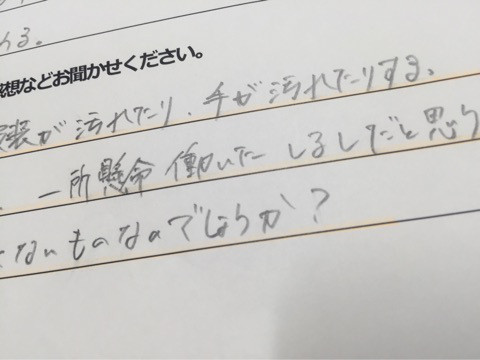 める。
感想などお聞かせください。
装が汚れたり、手が汚れたりする。
一所懸命働いたしるしだと思う
ないものなのでしょうか？